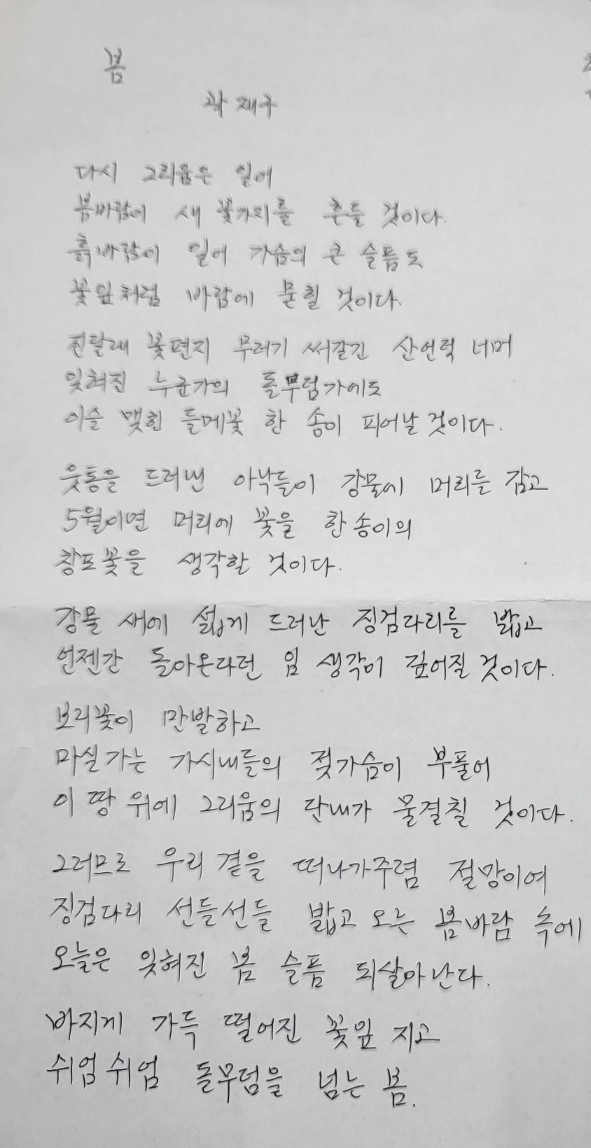 봄
곽재구
다시 그리움은 일어
봄바람이 새 꽃가지를 흔들 것이다.
흙바람이 일어 가슴의 큰 슬픔도
꽃잎처럼 바람에 묻힐 것이다.
진달래 꽃편지 무더기 써갈긴 산언덕 너머
잊혀진 누군가의 돌무덤가에도
이슬 맺힌 들메꽃 한 송이 피어날 것이다.
웃통을 드러낸 아낙들이 강물에 머리를 감고
5월이면 머리에 꽃을 한 송이의
창포꽃을 생각할 것이다.
강물 새에 섧게 드러난 징검다리를 밟고
언젠간 돌아온다던 임 생각이 깊어질 것이다.
보리꽃이 만발하고
마실가는 가시내들의 젖가슴이 부풀어
이 땅 위에 그리움의 단내가 물결칠 것이다.
그러므로 우리 곁을 떠나가주렴 절망이여
징검다리 선들선들 밟고 오는 봄바람 속에
오늘은 잊혀진 봄 슬픔 되살아난다.
바지게 가득 떨어진 꽃잎 지고
쉬엄쉬엄 돌무덤을 넘는 봄.